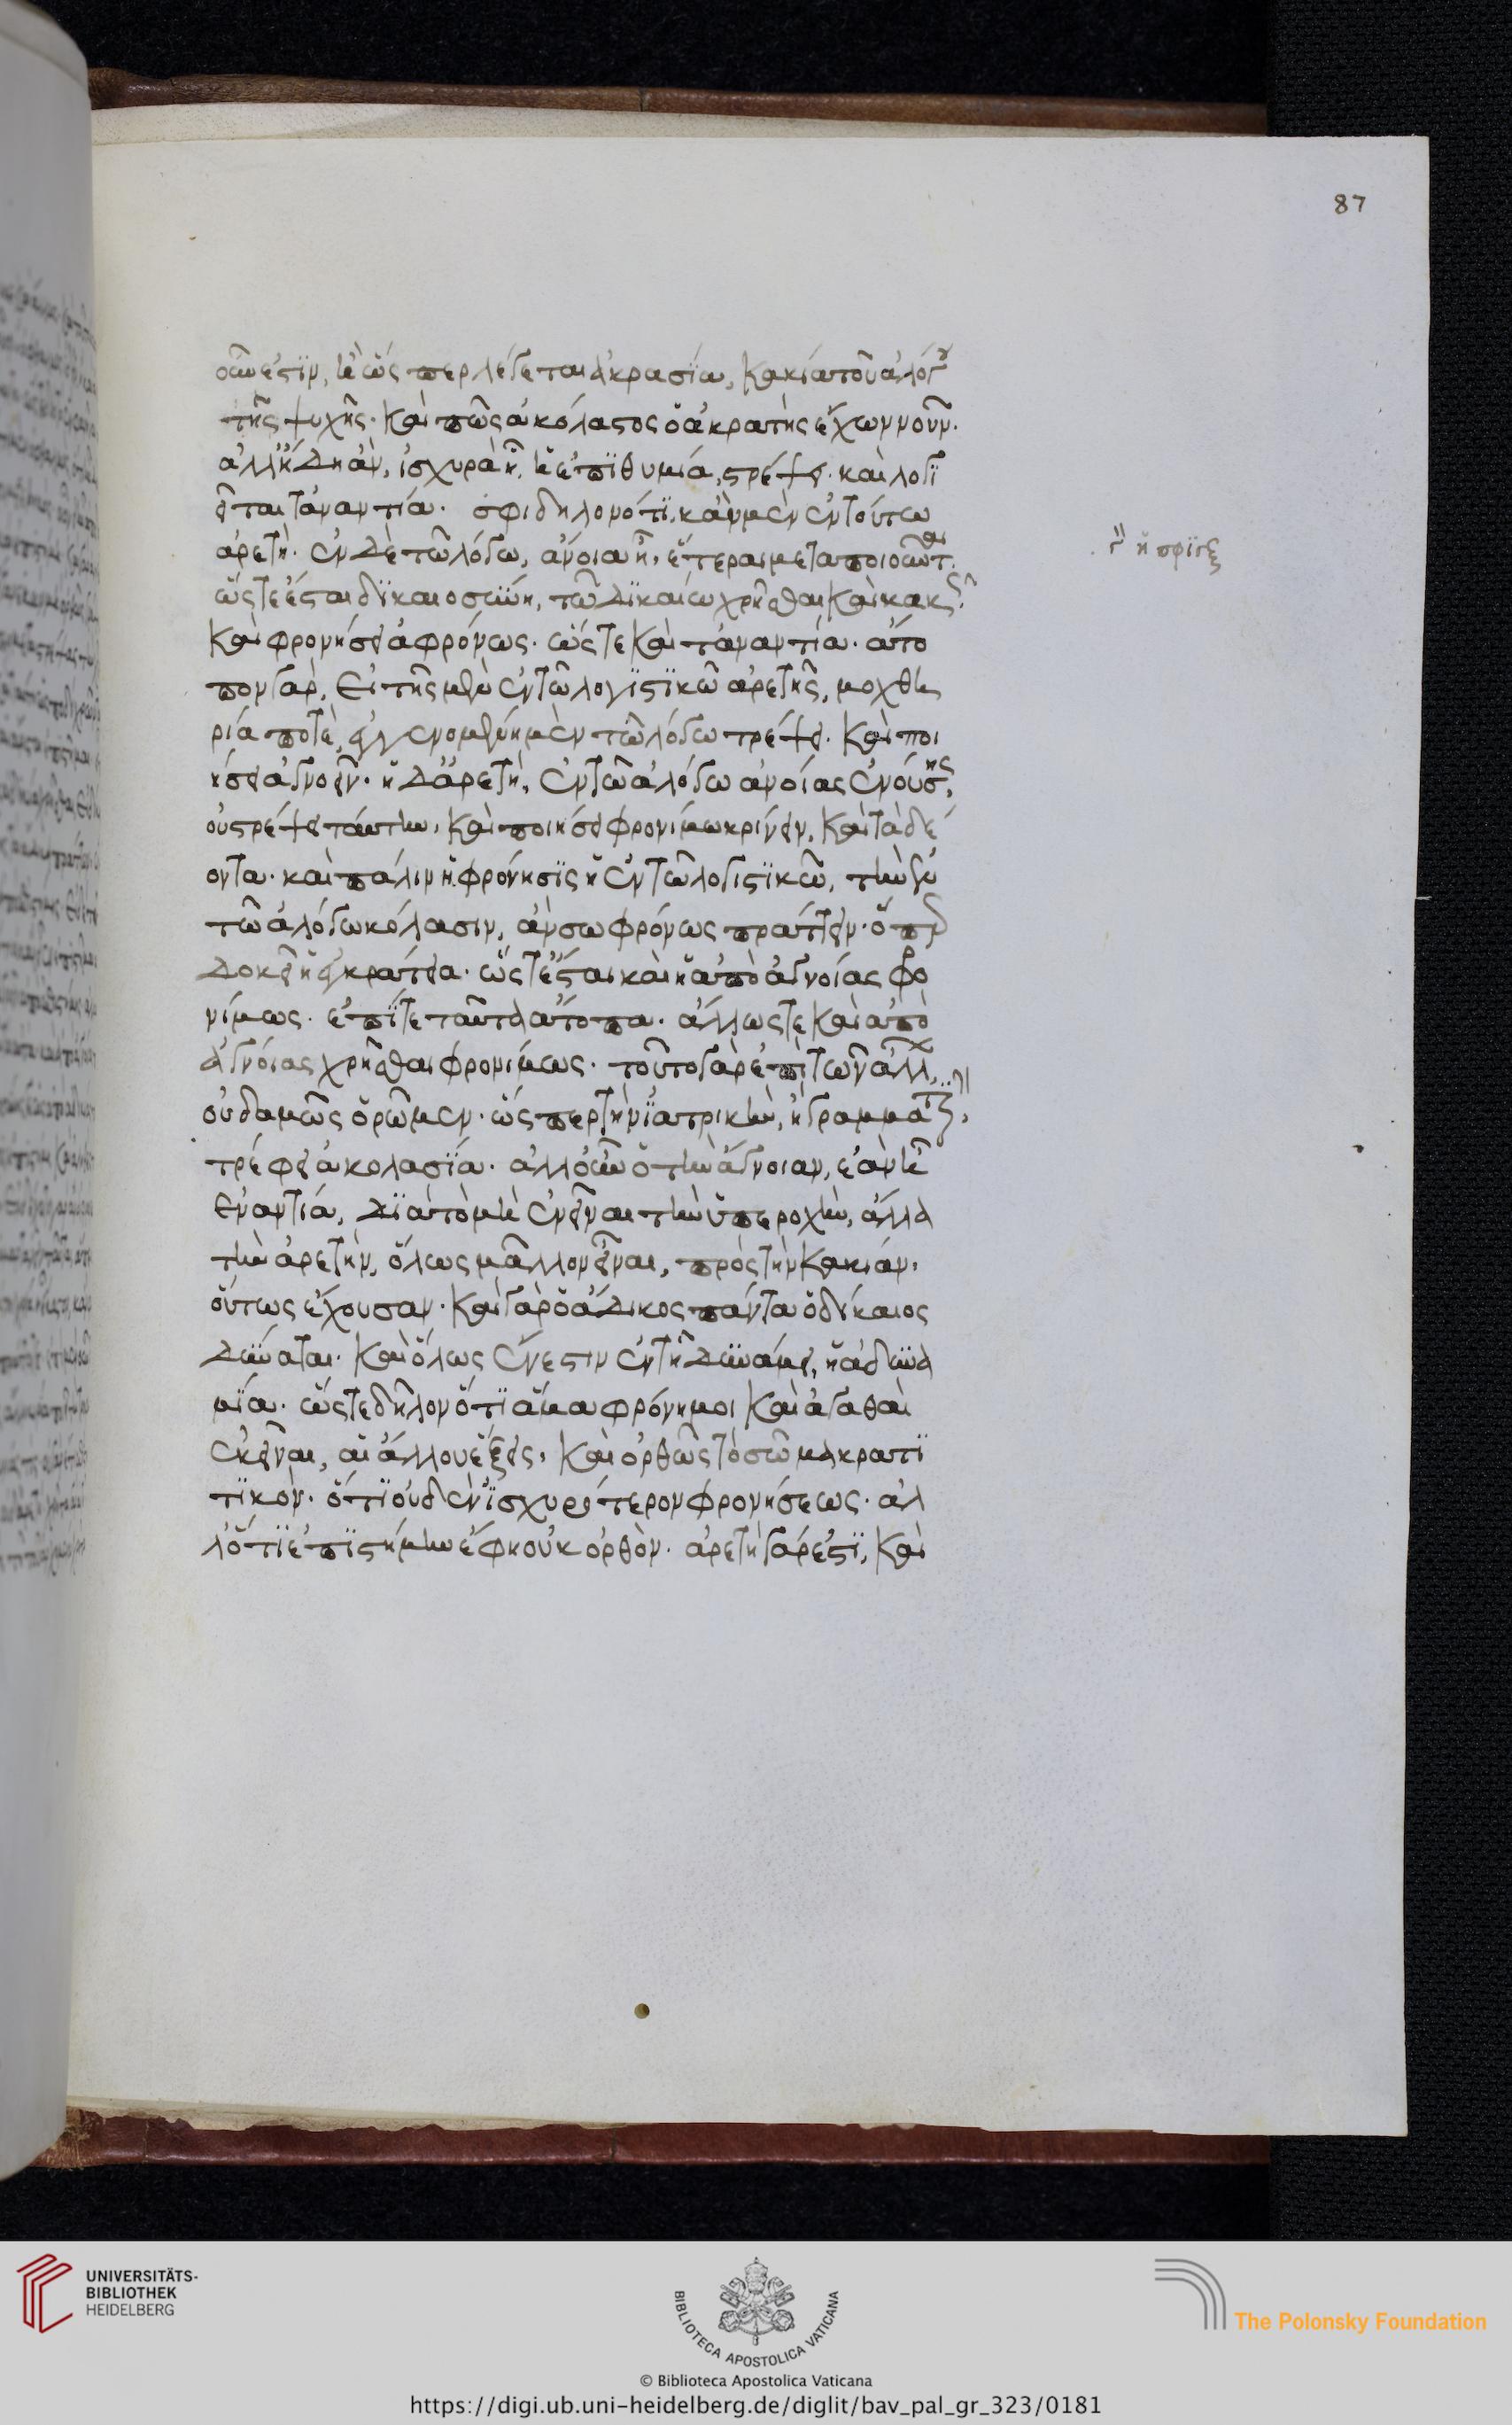 οὖν ἐστὶν, ἢ ὥσπερ λέγεται ἀκρασία, κακία τοῦ ἀλόγου
τῆς ψυχῆς· καὶ πῶς ἀκόλαστος ὁ ἀκρατὴς ἔχων νοῦν.
ἀλλ' ἤδη ἂν, ἰσχυρὰ ἦ, ἡ ἐπιθυμία, στρέψει. καὶ λογι
εῖται τἀναντία. σφι δηλονότι, κἂν μὲν ἐν τούτω
ἀρετὴ. ἐν δὲ τῶ λόγω, ἄνοια ἦ, ἕτεραι μεταποιοῦνται.
ὥστε ἔσται δικαιοσύνη, τῶ δικαίω χρῆσθαι καὶ κακῶς.
καὶ φρονήσει ἀφρόνως. ὥστε καὶ τἀναντία. ἄτο
πον γὰρ, εἰ τῆς μὲν ἐν τῶ λογιστικῶ ἀρετῆς, μοχθη
ρία ποτὲ, ἐγγενομένη μὲν τῶ λόγω τρέψει. καὶ ποι
ήσει ἀγνοεῖν. ἡ δ' ἀρετὴ, ἐν τῶ ἀλόγω ἀνοίας ἐνούσης,
οὐ στρέψει ταύτην, καὶ ποιήσει φρονίμω κρίνειν, καὶ τὰ δέ
οντα. καὶ πάλιν ἡ φρόνησις ἡ ἐν τῶ λογιστικῶ, τὴν ἐν
τῶ ἀλόγω κόλασιν, ἂν σωφρόνως πράττειν. ὅπερ
δοκεῖ ἡ ἐγκράτεια. ὥστ' ἔσται καὶ ἡ ἀπὸ ἀγνοίας φρο
νίμως. ἐπί τε ταῦτα ἄτοπα. ἄλλως τε καὶ ἀπὸ
ἀγνοίας χρῆσθαι φρονίμως. τοῦτο γὰρ ἐπὶ τῶν ἄλλων,
οὐδαμῶς ὁρῶμεν. ὥσπερ τὴν ἰατρικὴν, ἢ γραμματικὴν,
τρέφει ἀκολασία. ἀλλ' οὖν ὁ τὴν ἄγνοιαν, ἐὰν ἦ
ἐναντία, διὰ τὸ μὴ ἐνεῖναι τὴν ὑπεροχὴν, ἀλλὰ
τὴν ἀρετὴν, ὅλως μᾶλλον εἶναι, πρὸς τὴν κακίαν,
οὕτως ἔχουσαν. καὶ γὰρ ὁ ἄδικος πάντα ὁ δίκαιος
δύναται. καὶ ὅλως ἔνεστιν ἐν τῆ δυνάμει, ἡ ἀδυνα
μία. ὥστε δῆλον ὅτι ἅμα φρόνημοι καὶ ἀγαθαὶ
ἐκεῖναι, αἱ ἄλλου ἕξεις, καὶ ὀρθῶς τὸ σωμακρατι
τικὸν. ὅτι οὐδὲν ἰσχυρότερον φρονήσεως. ἀλ
λ' ὅτι ἐπιστήμην ἔφη οὐκ ὀρθὸν. ἀρετὴ γάρ ἐστι, καὶ
87
UNIVERSITÄTS-
BIBLIOTHEK
HEIDELBERG
BIBLIOTECA APOSTOLICA VATICANA
The Polonsky Foundation
© Biblioteca Apostolica Vaticana
https://digi.ub.uni-heidelberg.de/diglit/bav_pal_gr_323/0181